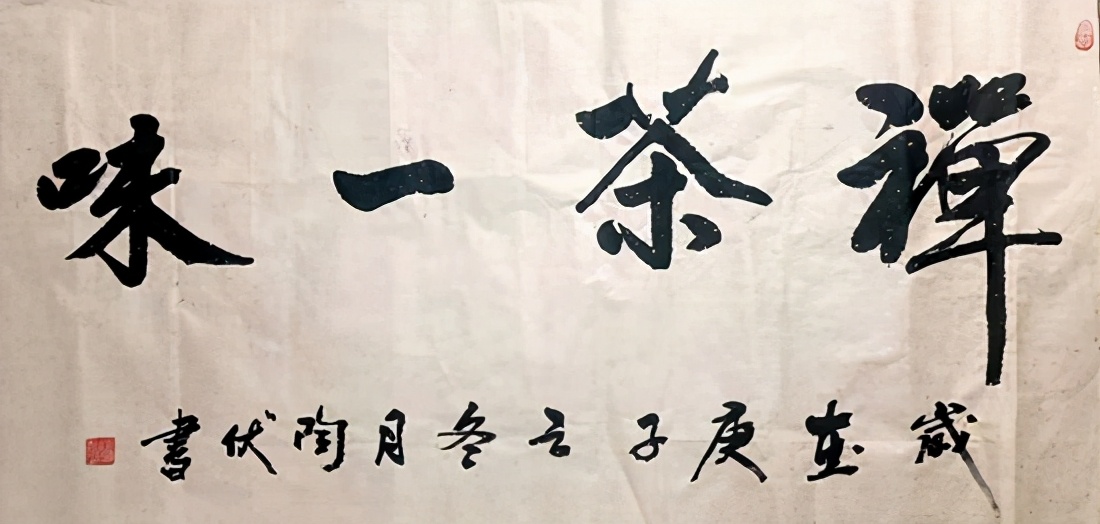 禪茶一味
歲在庚子之冬月陶伏書